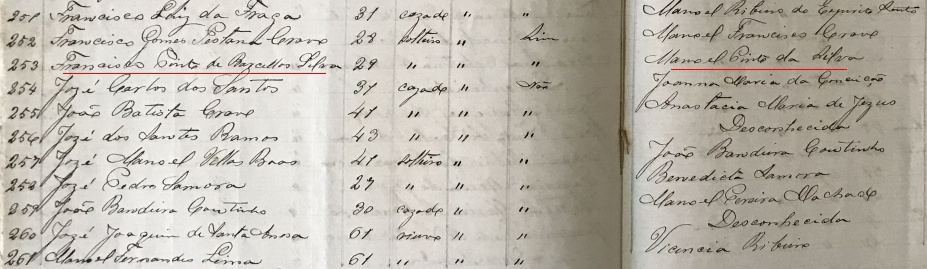 251 Francisco Luiz da Fraga 31 cazado " Manoel Ribeiro do Espirito Santo
252 Francisco Gomes Pestana Crave 28 solteiro " Sim Manoel Francisco Crave
253 Francisco Pinto de Barcellos Silva 29 " " " Manoel Pinto da Silva
254 José Carlos dos Santos 37 cazado " Não Joanna Maria da Conceição
255 João Batista Crave 41 " " " Anastacia Maria de Jezus
256 José dos Santos Ramos 43 " " " Desconhecida
257 José Manoel Vellas Boas 41 solteiro " " João Bandeira Coutinho
258 José Pedro Samora 27 " " " Benedicta Samora
259 João Bandeira Coutinho 30 cazado " " Manoel Pereira Machado
260 José Joaquim de Santa Anna 61 viuvo " " Desconhecida
261 Manoel Fernandes Lima 61 " " " Vicencia Ribeiro